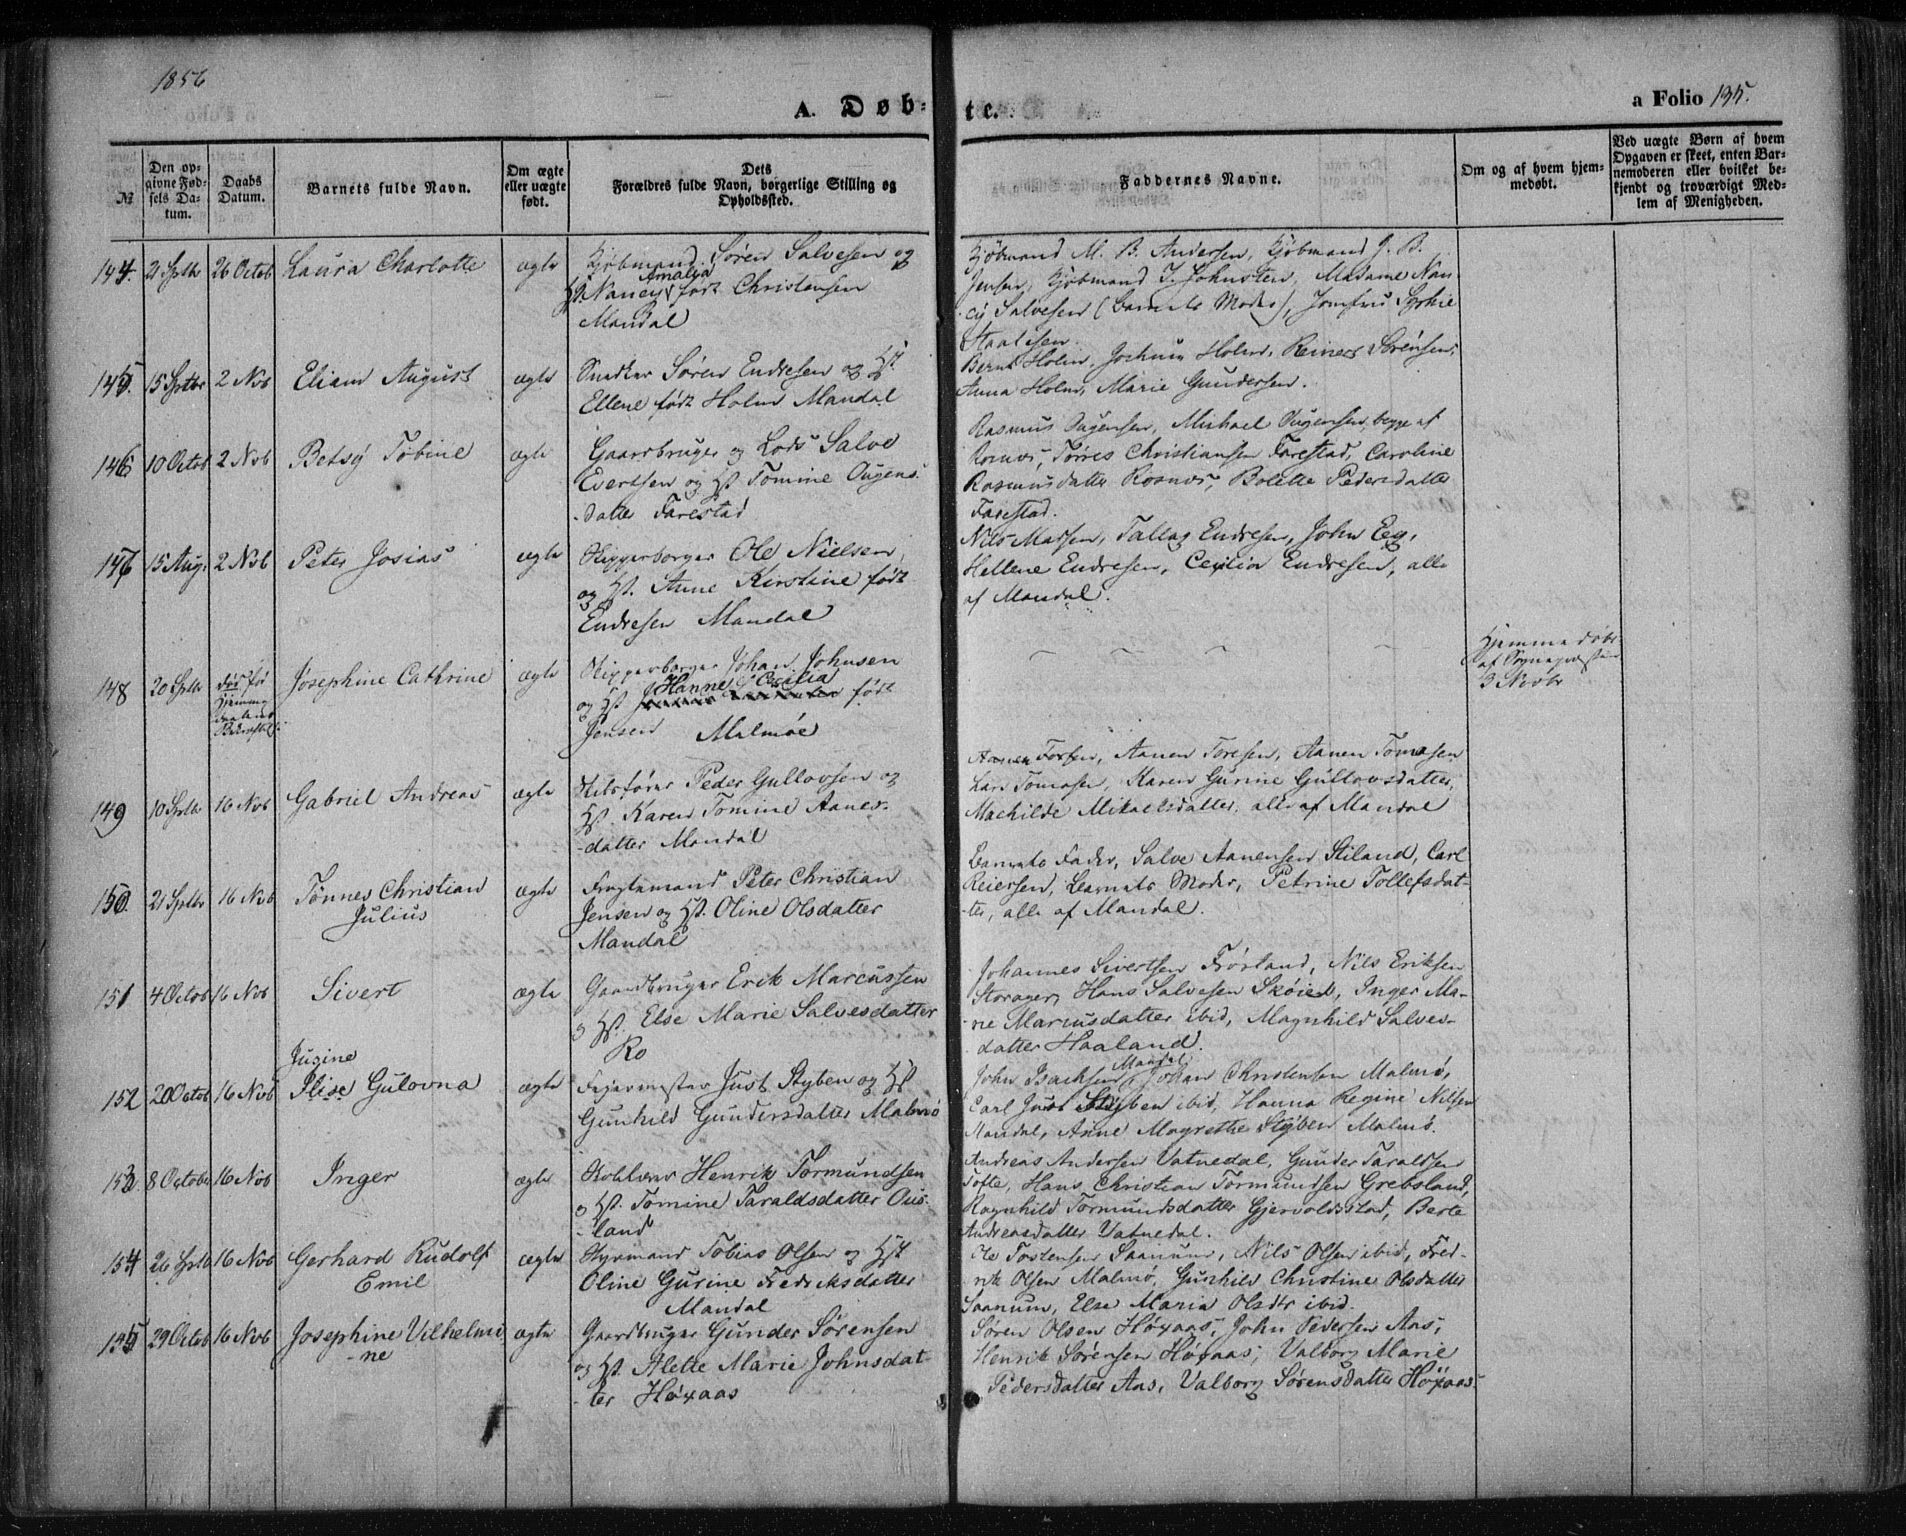 1856
A. Døbte.
a Folio 135.
№
Den op-
givne Fød-
sels Da-
tum.
Daabs
Datum.
Barnets fulde Navn.
Om ægte
eller uægte
født.
Dets
Forældres fulde Navn, borgerlige Stilling og
Opholdssted.
Faddernes Navne.
Om og af hvem hjem-
medøbt.
Ved uægte Børn af hvem
Opgaven er skeet, enten Bar-
nemoderen eller hvilket be-
kjendt og troværdigt Med-
lem af Menigheden.
144. 21 Sptbr 26 Octob Laura Charlotte ægte Kjøbmand Søren Salvesen og
Amalia
Hst Nancy født Christensen
Mandal
Kjøbmand M. B. Andersen, Kjøbmand J. B.
Jensen, Kjøbmand J. Johnsten, Madame Nan-
cy Salvesen (Barnets Moder), Jomfru Sophie
145. 15 Sptbr 2 Nvb Eliam August ægte Snedker Søren Endresen og Hst.
Ellene født Holm Mandal
Bernt Holm, Jochum Holm, Reiner Sørensen,
Anna Holm, Marie Gundersen.
146 10 Octob 2 Nvb Betsy Tobine ægte Gaardbruger og Lods Salve
Evertsen og Hst Tomine Ougens-
datter Farestad
Rasmus Ougensen, Michael Ougensen begge af
Rosnes, Tørres Christiansen Farestad, Caroline
Rasmusdatter Rosnes, Bolette Pedersdatter
Farestad.
147 15 Aug. 2 Nvb Peter Josias ægte Skipperborger Ole Nielsen,
og Hst. Anne Kirstine født
Endresen Mandal
Nils Madsen, Tallag Endresen, John Eeg,
Hellene Endresen, Cecilia Endresen, alle
af Mandal.
148 20 Sptbr Josephine Cathrine ægte Skipperborger Johan Johnsen
Hanne Cecilia
og Hst født
Jensen Malmøe
Hjemmedøbt
af Sognepræsten
3 Novbr
149 10 Sptbr 16 Nvb Gabriel Andreas ægte Peder Gullovsen og
Hst. Karen Tomine Aanes-
datter Mandal
Aanen Foresen, Aanen Tomasen
Lars Tomasen, Karen Gurine Gullovsdatter,
Machilde Mikaelsdatter, alle af Mandal
150. 21 Sptbr 16 Nvb Tønnes Christian
Julius
ægte Fragtemand Peter Christian
Jensen og Hst. Oline Olsdatter
Mandal
Barnets Fader, Salve Aanensen Stiland, Carl
Reiersen, Barnets Moder, Petrine Tollefsdat-
ter, alle af Mandal.
151 4 Octob 16 Nvb Sivert ægte Gaardbruger Erik Marcussen
og Hst. Else Marie Salvesdatter
Ro
Johannes Sivertsen Frøsland, Nils Eriksen
Storager, Hans Salvesen Skøied, Inger Ma-
rie Marcusdatter ibid, Magnhild Salves-
datter Haaland.
Jugine
152 20 Octob 16 Nvb Ilise Gulovna ægte Just Styben og Hst
Gunhild Gundersdatter Malmø
Mandal
John Isachsen, Johan Christensen Malmø,
Carl Just Styben ibid, Hanna Regine Nilsen
Mandal, Anne Magrethe Styben Malmø.
153. 8 October 16 Nvb Inger ægte Skolelærer Henrik Tormundsen
og Hst. Tomine Taraldsdatter Ous-
land
Andreas Andersen Vatnedal, Gunder Taraldsen
Tofte, Hans Christian Tormundsen Grebsland,
Ragnhild Tormundsdatter Gjervoldstad, Berte
Andreasdatter Vatnedal.
154 26 Sptb 16 Nvb Gerhard Rudolf
Emil
ægte Styrmand Tobias Olsen og Hst
Oline Gurine Fredriksdatter
Mandal
Ole Tostensen Saanum, Nils Olsen ibid, Fred-
rik Olsen Malmø, Gunhild Christine Olsdatter
Saanum, Else Maria Olsdtr ibid.
155 29 Octob 16 Nvb Josephine Vilhelmi-
ne
ægte Gaardbruger Gunder Sørensen
og Hst. Alette Marie Johnsdat-
ter Høxaas
Søren Olsen Høxaas, John Pedersen Aas,
Henrik Sørensen Høxaas, Valborg Marie
Pedersdatter Aas, Valborg Sørensdatter Høxaas.